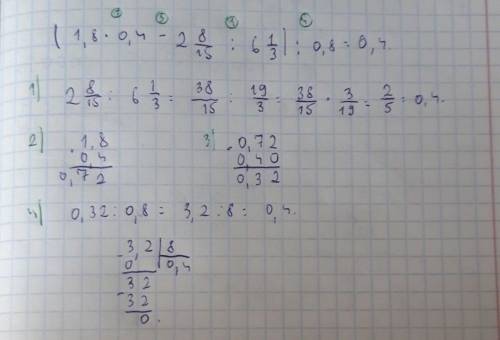 ② ③ ① ④
(1,8 · 0,4 - 2 8/15 : 6 1/3) : 0,8 = 0,4.
1) 2 8/15 : 6 1/3 = 38/15 : 19/3 = 38/15 · 3/19 = 2/5 = 0,4.
2) · 1,8 3) - 0,72
0,4 0,40
0,72 0,32
4) 0,32 : 0,8 = 3,2 : 8 = 0,4.
- 3,2 | 8
0 0,4
- 32
32
0.